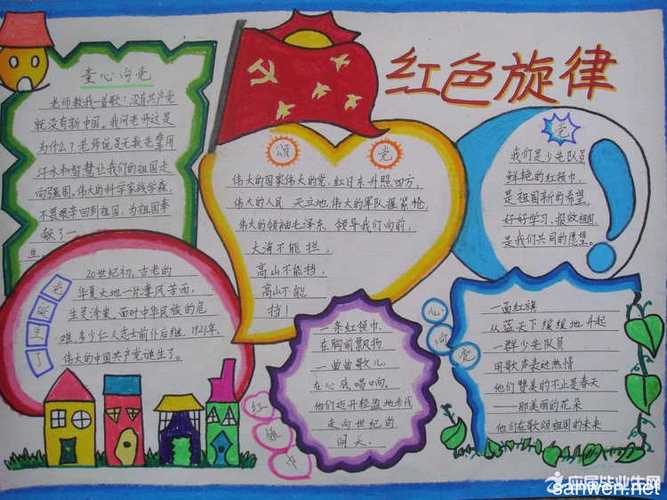 红色旋律
童心向党
老师教我一首歌：没有共产党
就没有新中国。我问老师这是
为什么？老师说是无数先辈用
汗水和智慧让我们的祖国走
向强国。伟大的科学家钱学森，
不畏艰辛回到祖国，为祖国奉
献了一
生
颂党
伟大的国家伟大的党，红日东升照四方，
伟大的人民 天立地，伟大的军队握紧枪，
伟大的领袖毛泽东，领导我们向前，
大海不能拦，
高山不能挡，
高山不能
挡！
党
我们是少先队员
鲜艳的红领巾，
是祖国新的希望。
好好学习，报效祖国
是我们共同的愿望。
党诞生了
20世纪初，古老的
华夏大地一片凄风苦雨，
生灵涂炭，面对中华民族的危
难，多少仁人志士前仆后继，1921年，
伟大的中国共产党诞生了。
红领巾
一条红领巾，
在胸前飘扬
一曲曲歌儿，
在心底唱响
他们迈开轻盈地步伐
走向世纪的
明天。
心向党
一面红旗
从蓝天下缓缓地升起
一群少先队员
用歌声表达热情
他们赞美的不止是春天
——那美丽的花朵
他们在歌颂祖国的未来
应届毕业生网
sanwen.net